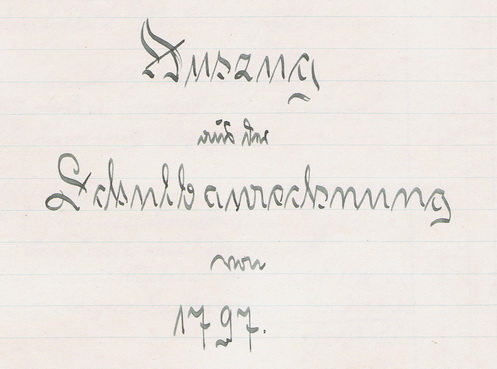 Auszug
aus der
Schulbaurechnung
von
1797.